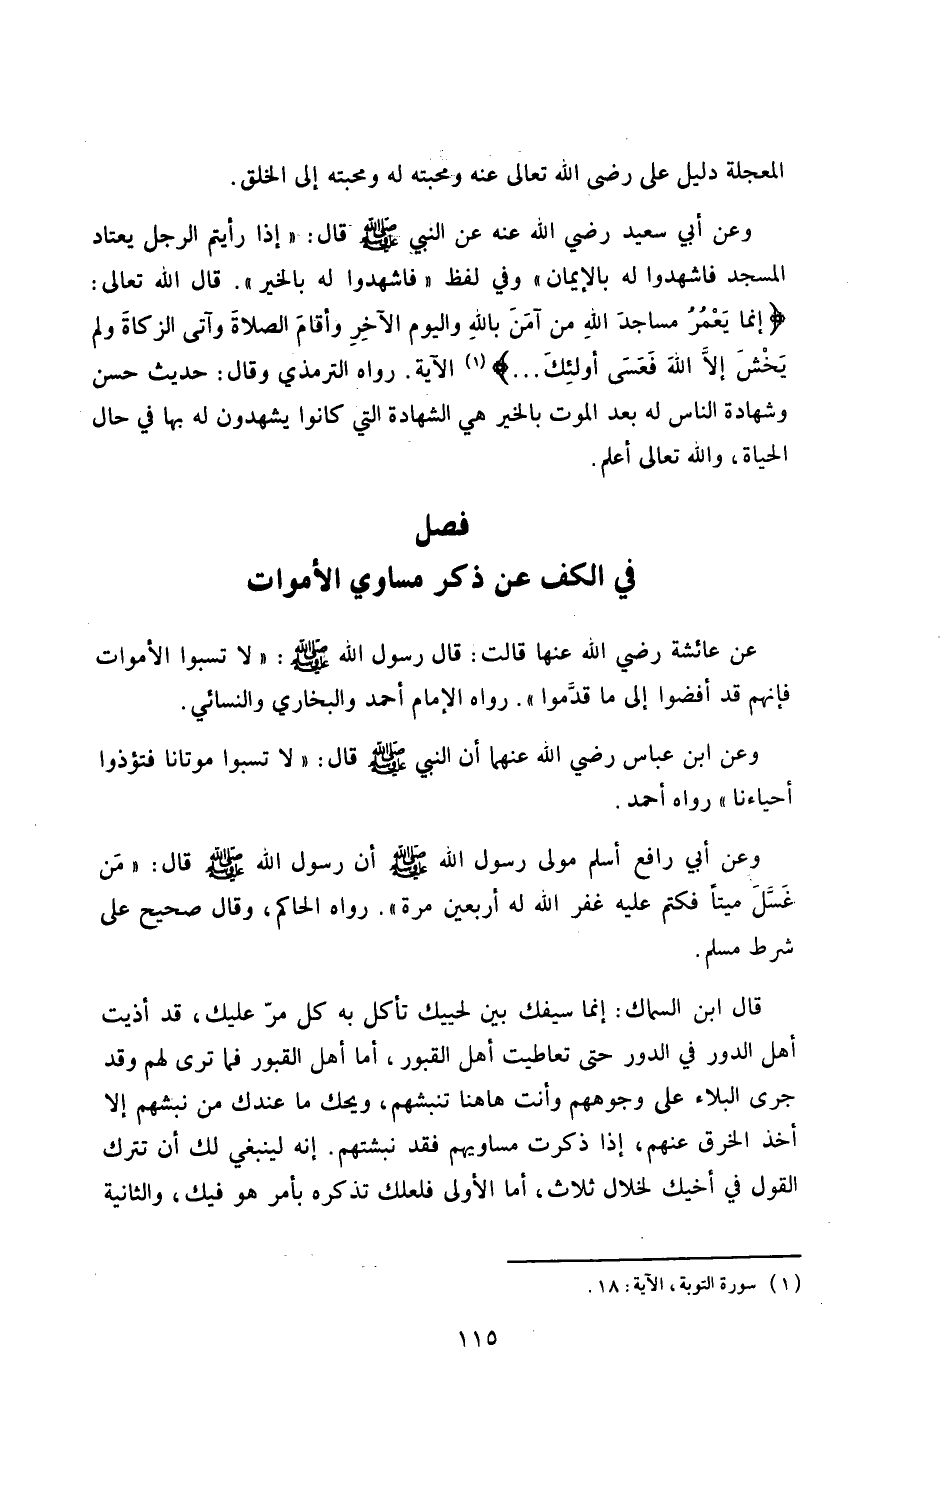 المعجلة دليل على رضى الله تعالى عنه ومحبته له ومحبته إلى الخلق.
وعن أبي سعيد رضي الله عنه عن النبي ﷺ قال: « إذا رأيتم الرجل يعتاد
المسجد فاشهدوا له بالإيمان» وفي لفظ « فاشهدوا له بالخير». قال الله تعالى:
﴿ إنما يَعْمُرُ مساجدَ اللهِ من آمَنَ باللهِ واليومِ الآخِرِ وأقامَ الصلاةَ وآتى الزكاةَ ولم
يَخْشَ إلاَّ اللهَ فَعَسَى أولئِكَ...﴾ (١) الآية. رواه الترمذي وقال: حديث حسن
وشهادة الناس له بعد الموت بالخير هي الشهادة التي كانوا يشهدون له بها في حال
الحياة، والله تعالى أعلم.
فصل
في الكف عن ذكر مساوي الأموات
عن عائشة رضي الله عنها قالت: قال رسول الله ﷺ: « لا تسبوا الأموات
فإنهم قد أفضوا إلى ما قدَّموا ». رواه الإمام أحمد والبخاري والنسائي.
وعن ابن عباس رضي الله عنهما أن النبي ﷺ قال: « لا تسبوا موتانا فتؤذوا
أحياءنا » رواه أحمد.
وعن أبي رافع أسلم مولى رسول الله ﷺ أن رسول الله ﷺ قال: « مَن
غَسَّلَ ميتاً فكتم عليه غفر الله له أربعين مرة». رواه الحاكم، وقال صحيح على
شرط مسلم.
قال ابن السماك: إنما سيفك بين لحييك تأكل به كل مرّ عليك، قد أذيت
أهل الدور في الدور حتى تعاطيت أهل القبور، أما أهل القبور فما ترى لهم وقد
جرى البلاء على وجوههم وأنت هاهنا تنبشهم، ويحك ما عندك من نبشهم إلا
أخذ الخرق عنهم، إذا ذكرت مساويهم فقد نبشتهم. إنه لينبغي لك أن تترك
القول في أخيك لخلال ثلاث، أما الأولى فلعلك تذكره بأمر هو فيك، والثانية
(١) سورة التوبة، الآية: ١٨.
١١٥